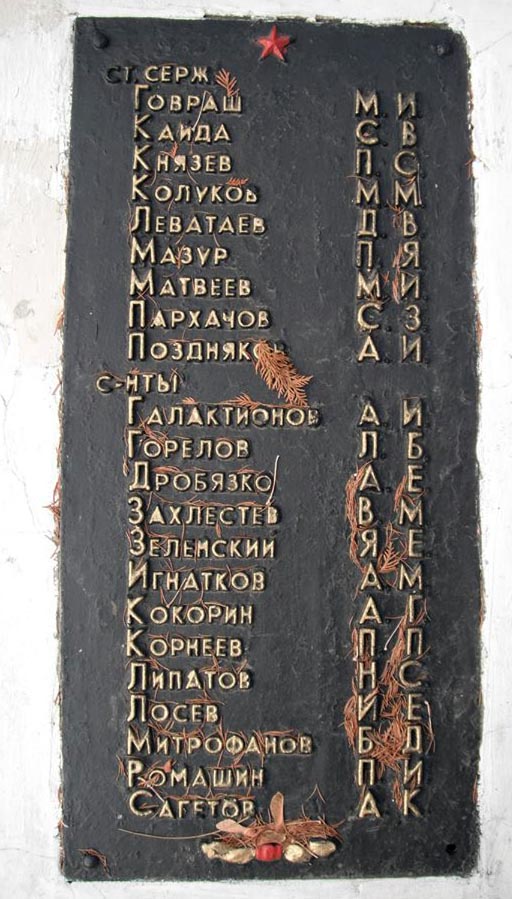 СТ. СЕРЖ
ГОВРАШ М. И
КАИДА С. В
КНЯЗЕВ П. С
КОЛУКОВ М. М
ЛЕВАТАЕВ Д. В
МАЗУР П. Я
МАТВЕЕВ М. И
ПАРХАЧОВ С. З
ПОЗДНЯКОВ А. И
С-НТЫ
ГАЛАКТИОНОВ А. И
ГОРЕЛОВ Л. Б
ДРОБЯЗКО А. Е
ЗАХЛЕСТЕВ В. М
ЗЕЛЕНСКИЙ Я. Е
ИГНАТКОВ А. М
КОКОРИН А. Г
КОРНЕЕВ П. П
ЛИПАТОВ Н. С
ЛОСЕВ И. Е
МИТРОФАНОВ Б. Д
РОМАШИН П. И
САГЕТОВ А. К